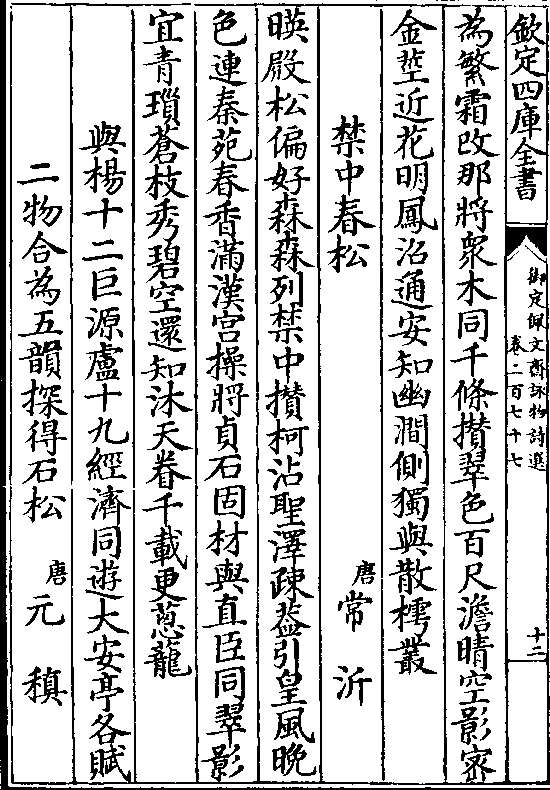 欽定四庫全書
御定佩文齋詠物詩選
卷二百七十七
十二
為繁霜改那將衆木同千條攢翠色百尺澹晴空影宻
金莖近花明鳳沼通安知幽澗側獨與散樗叢
禁中春松 唐 常沂
暎殿松偏好森森列禁中攢柯沾聖澤疎葢引皇風晚
色連秦苑春香滿漢宫操將貞石固材與直臣同翠影
宜青瑣蒼枝秀碧空還知沐天眷千載更葱蘢
與楊十二巨源盧十九經濟同遊大安亭各賦
二物合為五韻探得石松 唐 元稹